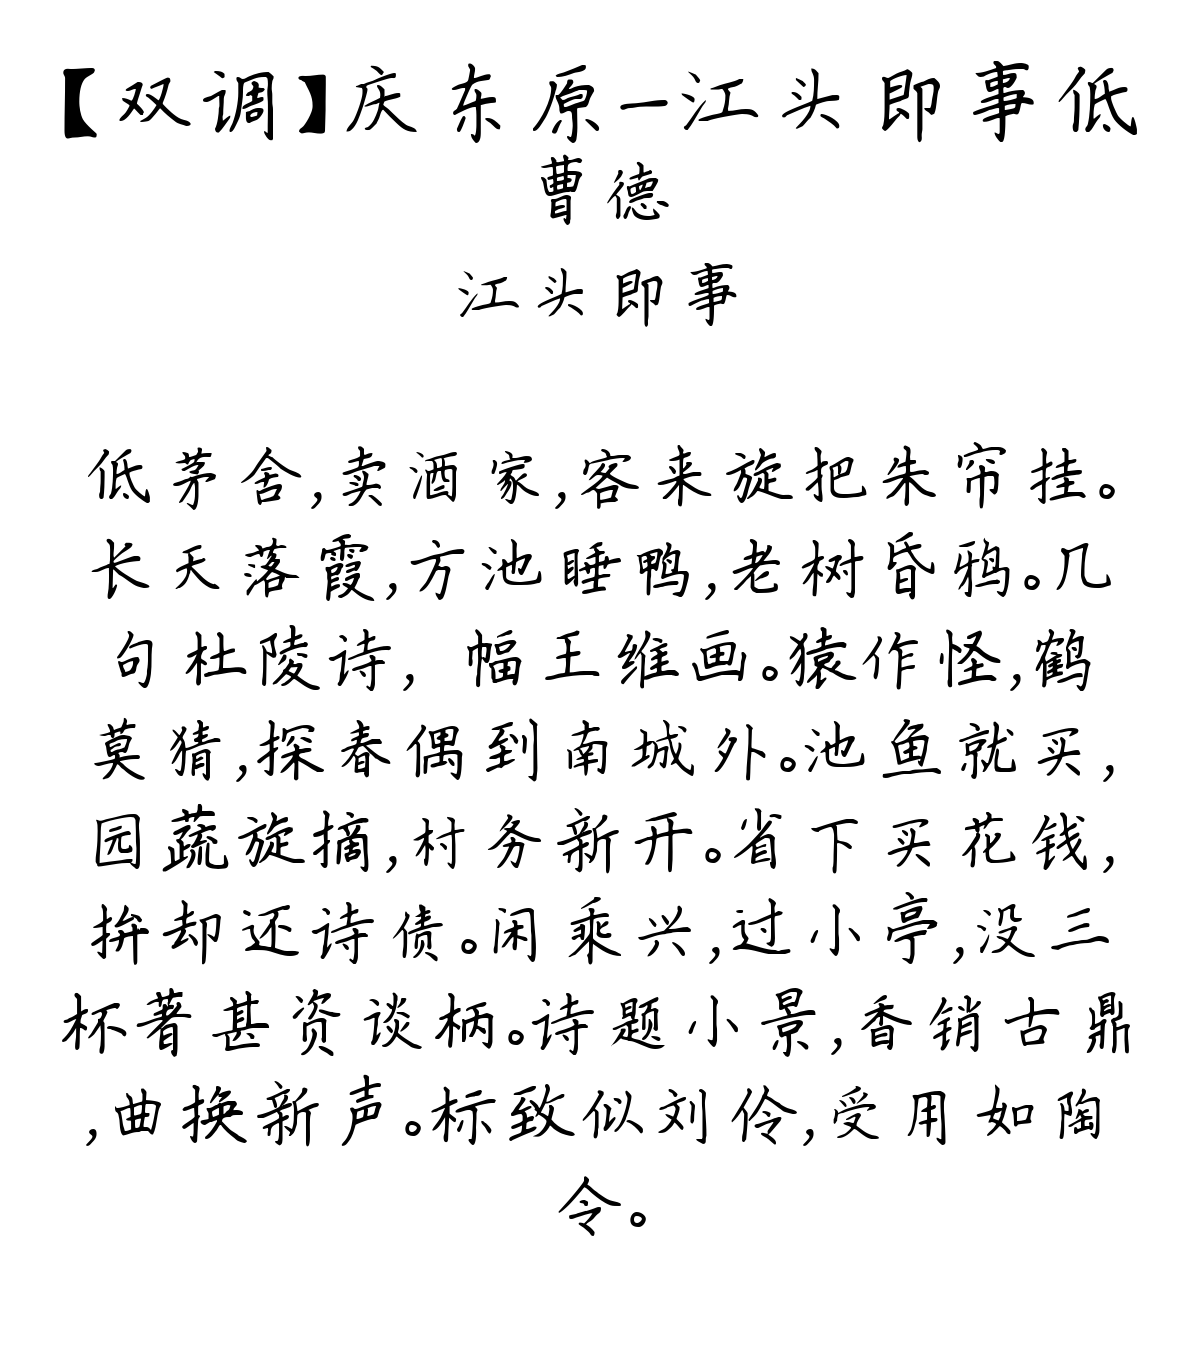 【双调】庆东原-江头即事低
曹德
江头即事
低茅舍,卖酒家,客来旋把朱帘挂。
长天落霞,方池睡鸭,老树昏鸦。几
句杜陵诗, 幅王维画。猿作怪,鹤
莫猜,探春偶到南城外。池鱼就买,
园蔬旋摘,村务新开。省下买花钱,
拚却还诗债。闲乘兴,过小亭,没三
杯著甚资谈柄。诗题小景,香销古鼎
,曲换新声。标致似刘伶,受用如陶
令。